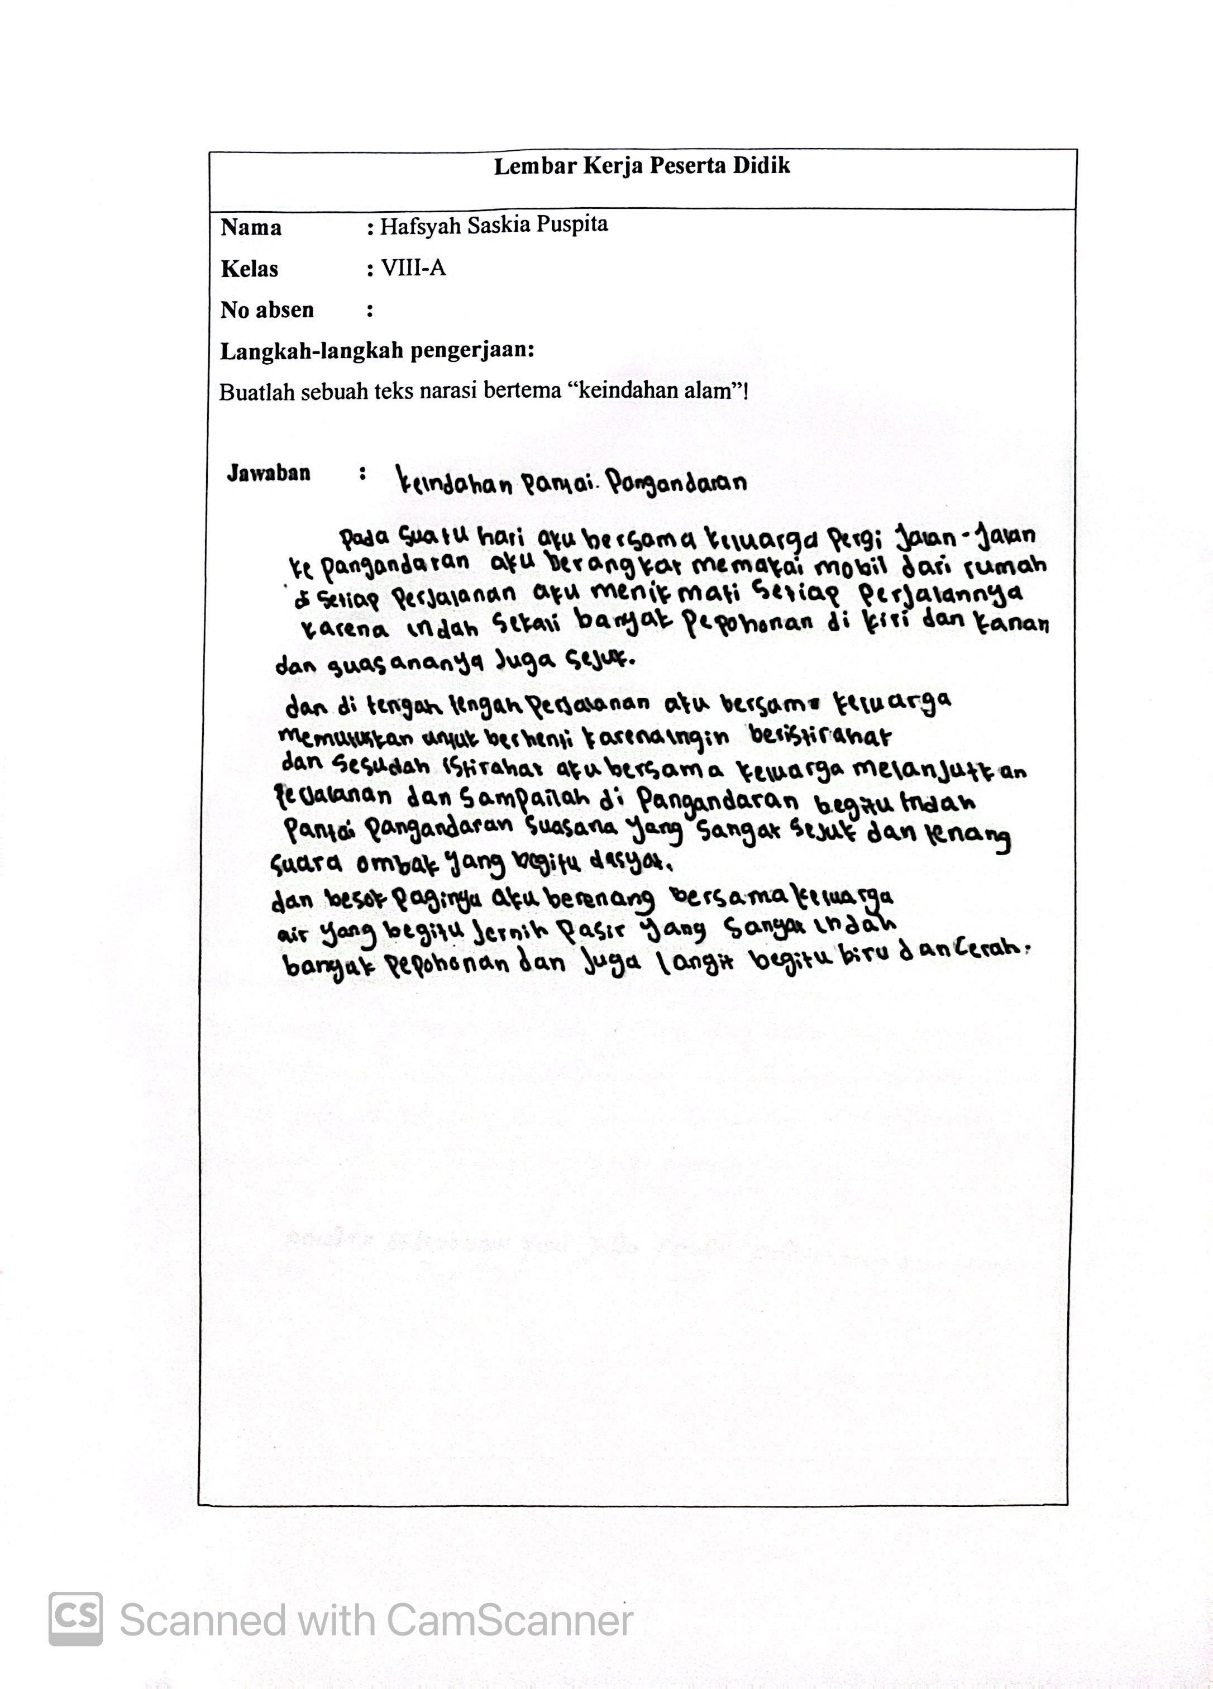 Lembar Kerja Peserta Didik
Nama : Hafsyah Saskia Puspita
Kelas : VIII-A
No absen :
Langkah-langkah pengerjaan:
Buatlah sebuah teks narasi bertema “keindahan alam”!
Jawaban : keindahan Pantai. Pangandaran
Pada Suatu hari aku bersama keluarga Pergi Jalan-Jalan
ke Pangandaran aku berangkat memakai mobil dari rumah
di Setiap Perjalanan aku menikmati Setiap Perjalannya
karena indah Sekali banyak Pepohonan di kiri dan kanan
dan suasananya Juga Sejuk.
dan di tengah tengah Perjalanan aku bersama keluarga
memutuskan untuk berhenti karena ingin beristirahat
dan Sesudah istirahat aku bersama keluarga melanjutkan
Perjalanan dan Sampailah di Pangandaran begitu indah
Pantai Pangandaran Suasana yang Sangat Sejuk dan tenang
Suara ombak yang begitu dasyat.
dan besok Paginya aku berenang bersama keluarga
air yang begitu Jernih Pasir yang Sangat indah
banyak Pepohonan dan Juga langit begitu biru dan Cerah.
CS Scanned with CamScanner